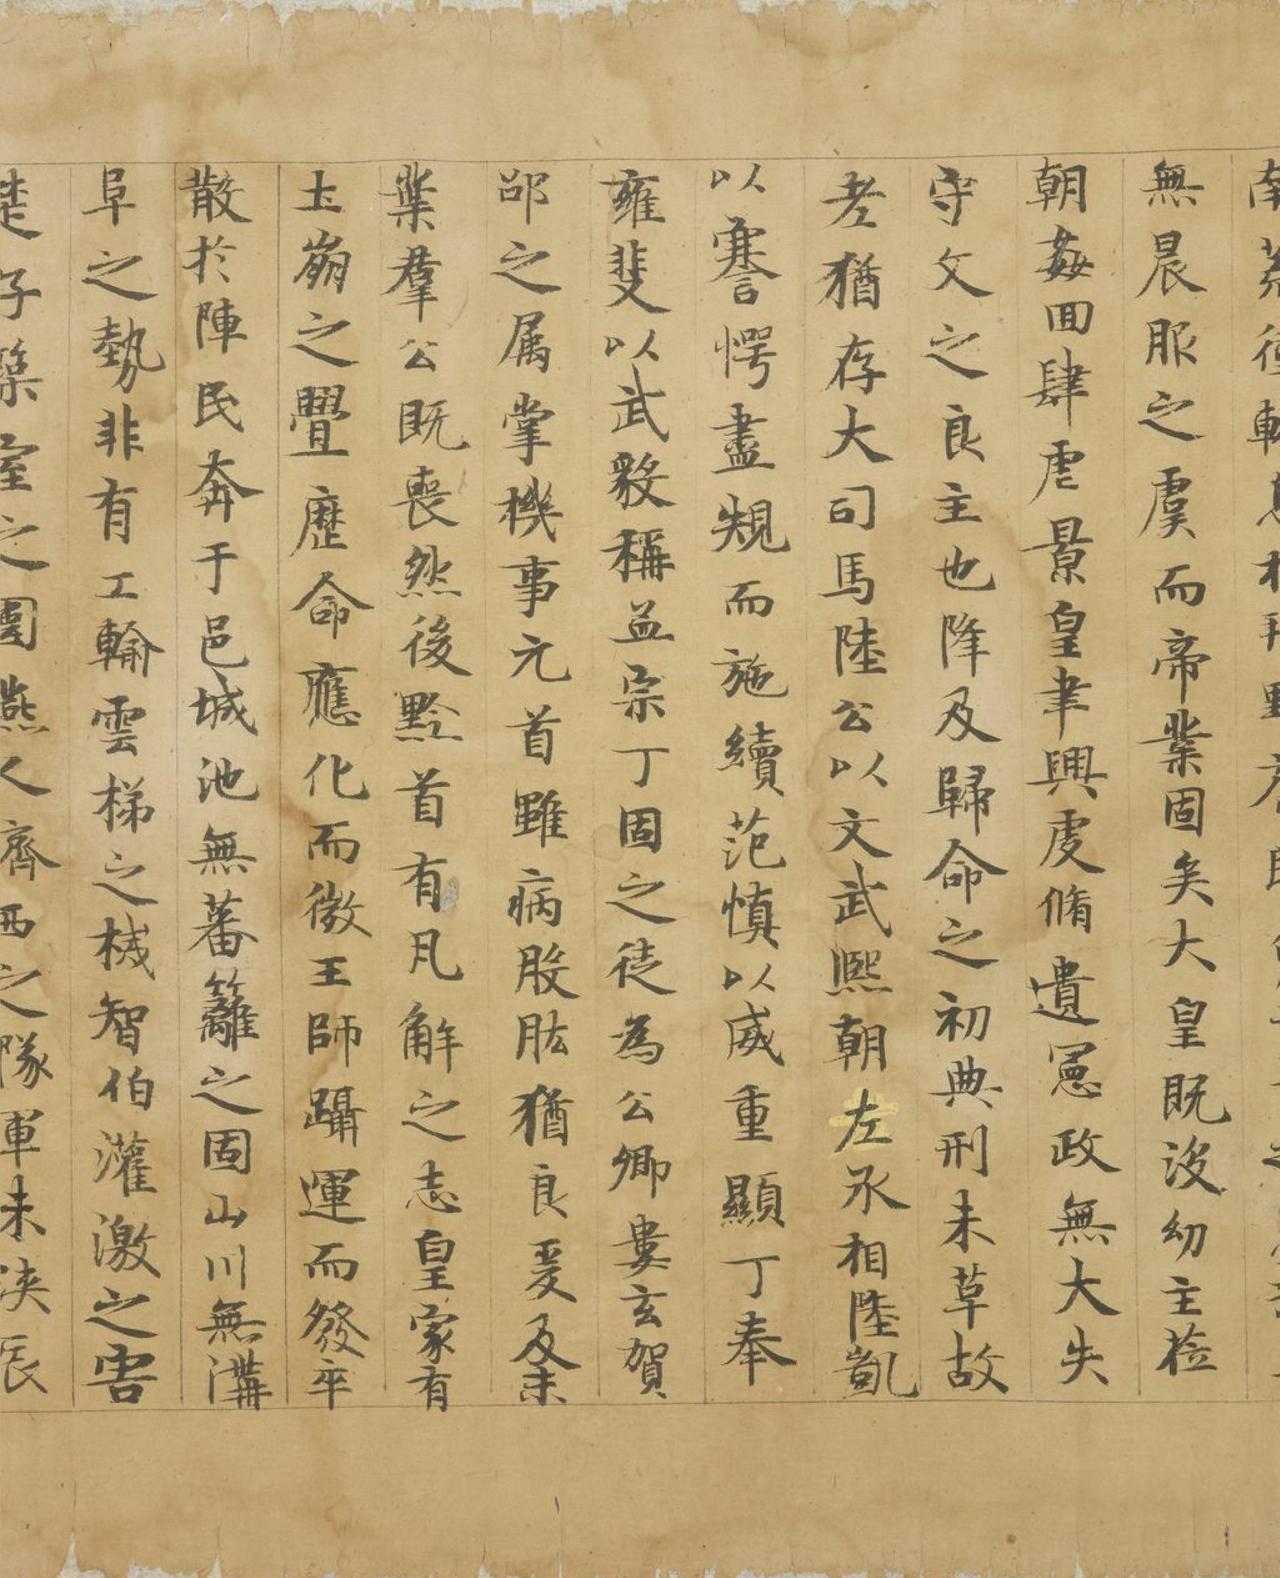 無晨服之虞而帝業固矣大皇既没幼主莅
朝姦回肆虐景皇聿興虔脩遺憲政無大失
守文之良主也降及歸命之初典刑未草故
老猶存大司馬陸公以文武熙朝左丞相陸凱
以謇愕盡規而施績范慎以威重顯丁奉
雍斐以武毅稱孟宗丁固之徒為公卿婁玄賀
邵之属掌機事元首雖病股肱猶良爰及末
業羣公既喪然後黔首有凡解之志皇家有
土崩之舋歷命應化而微王師躡運而發卒
散於陣民奔于邑城池無蕃籬之固山川無溝
阜之勢非有工輸雲梯之械智伯灌激之害
楚子築室之圍燕人齊西之隊軍未浹辰